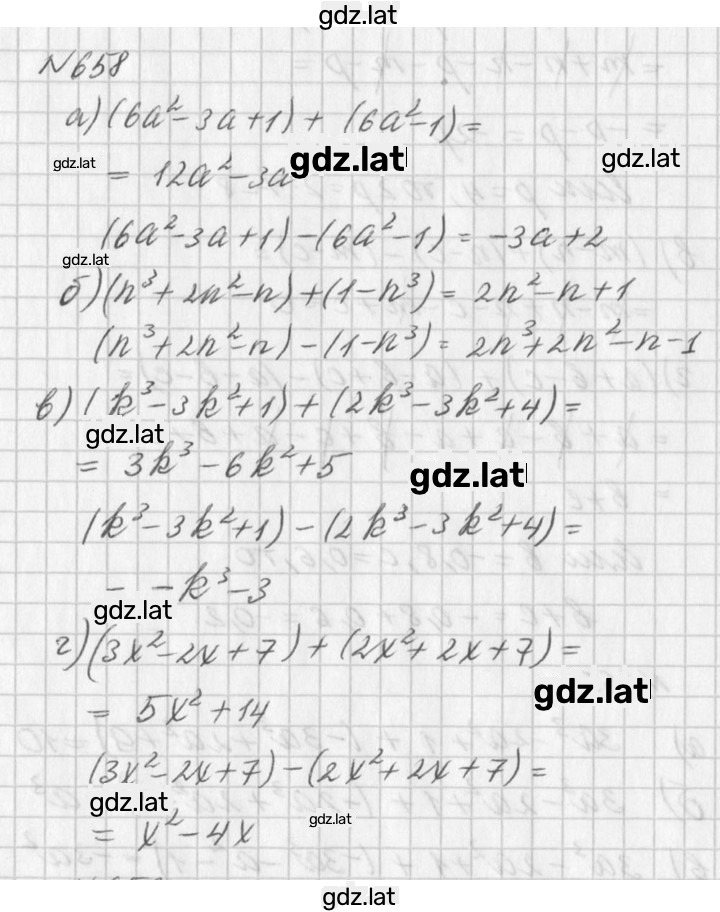 gdz.lat
№658
а) (6a²-3a+1) + (6a²-1) =
gdz.lat gdz.lat gdz.lat
= 12a²-3a
(6a²-3a+1)-(6a²-1) = -3a+2
gdz.lat
б) (n³+2n²-n)+(1-n³) = 2n²-n+1
(n³+2n²-n)-(1-n³) = 2n³+2n²-n-1
в) (k³-3k²+1)+(2k³-3k²+4) =
gdz.lat
= 3k³-6k²+5
gdz.lat
(k³-3k²+1)-(2k³-3k²+4) =
= -k³-3
gdz.lat
г) (3x²-2x+7)+(2x²+2x+7) =
gdz.lat
= 5x²+14
(3x²-2x+7)-(2x²+2x+7) =
gdz.lat
gdz.lat
= x²-4x
gdz.lat